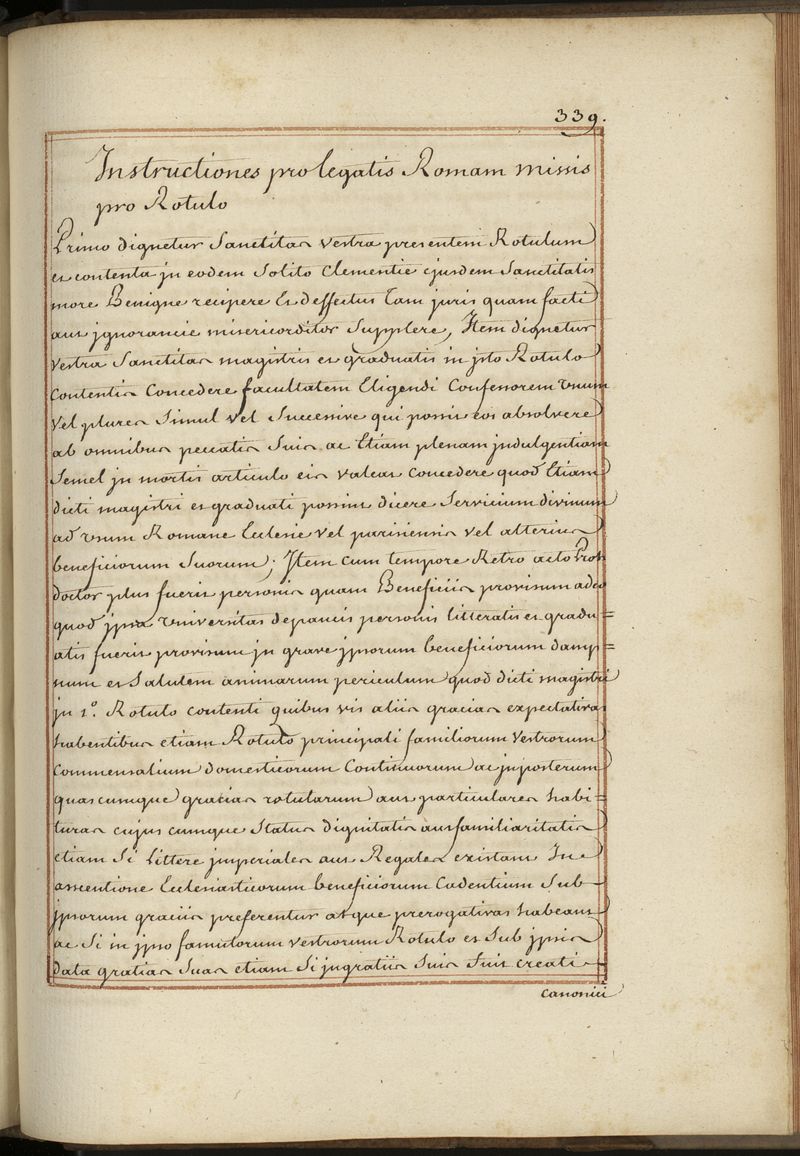 339.
Instructiones pro legatis Romam missis
pro Rotulo
Primo dignetur Sanctitas vestra presentem Rotulum
et contenta in eodem Solito Clementie ejusdem Sanctitatis
more Benigne recipere Et deffectus tam juris quam facti
aut jgnorancie misericorditer Supplere, Item dignetur
vestra Sanctitas magistris et graduatis in jsto Rotulo
Contentis Concedere facultatem Eligendi Confessorem vnum
vel plures Simul vel Successive qui possit eos absolvere
ab omnibus peccatis Suis ac Etiam plenam jndulgentiam
Semel jn mortis articulo eis valeat concedere quod Etiam
dicti magistri et graduati possint dicere Servicium divinum
ad vsum Romane Ecclesie vel parisiensis vel alterius
beneficiorum Suorum; Item cum tempore Retro acto Proh
doctor plus fuerit personis quam Beneficiis provisum adeo
quod jpsa Universitas depaucis personis litteratis et gradu=
atis fuerit provisum jn grave jpsorum beneficiorum damp=
num et Salutem animarum periculum quod dicti magistri
jn 1o. Rotulo contenti quibus vis aliis gracias expectativas
habentibus etiam Rotulo principali familiorum vestrorum
Commensalium domesticorum Continuorum ac jnposterum
quascumque gracias rotularum aut particulares habi=
turas cujus cumque Status dignitatis aut familiaritatis
etiam Si Littere jmperiales aut Regales existant In
assentione Ecclesiasticorum beneficiorum Cadentium Sub
jpsorum graciis preferentur atque prerogativas habeant
ac Si in jpso famulorum vestrorum Rotulo et Sub jpsis
data gratias Suas etiam Si jn gratiis Suis Sint creati
canonici